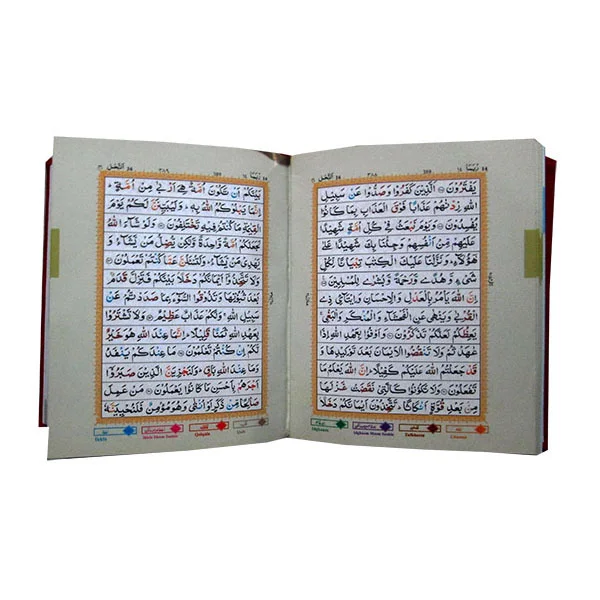 ربما ١٤ 388 ٣٨٨ النحل ١٦
يَفْتَرُوْنَ ۝ اَلَّذِيْنَ كَفَرُوْا وَصَدُّوْا عَنْ سَبِيْلِ
اللّٰهِ زِدْنٰهُمْ عَذَابًا فَوْقَ الْعَذَابِ بِمَا كَانُوْا
يُفْسِدُوْنَ ۝ وَيَوْمَ نَبْعَثُ فِيْ كُلِّ اُمَّةٍ شَهِيْدًا
عَلَيْهِمْ مِّنْ اَنْفُسِهِمْ وَجِئْنَا بِكَ شَهِيْدًا عَلٰى
هٰٓؤُلَآءِ ؕ وَنَزَّلْنَا عَلَيْكَ الْكِتٰبَ تِبْيَانًا لِّكُلِّ
شَيْءٍ وَّهُدًى وَّرَحْمَةً وَّبُشْرٰى لِلْمُسْلِمِيْنَ ۝
اِنَّ اللّٰهَ يَاْمُرُ بِالْعَدْلِ وَالْاِحْسَانِ وَاِيْتَآئِ ذِي
الْقُرْبٰى وَيَنْهٰى عَنِ الْفَحْشَآءِ وَالْمُنْكَرِ وَالْبَغْيِ
يَعِظُكُمْ لَعَلَّكُمْ تَذَكَّرُوْنَ ۝ وَاَوْفُوْا بِعَهْدِ اللّٰهِ اِذَا
عٰهَدْتُّمْ وَلَا تَنْقُضُوا الْاَيْمَانَ بَعْدَ تَوْكِيْدِهَا وَ
قَدْ جَعَلْتُمُ اللّٰهَ عَلَيْكُمْ كَفِيْلًا ؕ اِنَّ اللّٰهَ يَعْلَمُ مَا
تَفْعَلُوْنَ ۝ وَلَا تَكُوْنُوْا كَالَّتِيْ نَقَضَتْ غَزْلَهَا
مِنْۢ بَعْدِ قُوَّةٍ اَنْكَاثًا ؕ تَتَّخِذُوْنَ اَيْمَانَكُمْ دَخَلًا
ربما ١٤ 389 ٣٨٩ النحل ١٦
بَيْنَكُمْ اَنْ تَكُوْنَ اُمَّةٌ هِيَ اَرْبٰى مِنْ اُمَّةٍ ؕ
اِنَّمَا يَبْلُوْكُمُ اللّٰهُ بِهٖ ؕ وَلَيُبَيِّنَنَّ لَكُمْ يَوْمَ
الْقِيٰمَةِ مَا كُنْتُمْ فِيْهِ تَخْتَلِفُوْنَ ۝ وَلَوْ شَآءَ اللّٰهُ
لَجَعَلَكُمْ اُمَّةً وَّاحِدَةً وَّلٰكِنْ يُّضِلُّ مَنْ يَّشَآءُ وَ
يَهْدِيْ مَنْ يَّشَآءُ ؕ وَلَتُسْـَٔلُنَّ عَمَّا كُنْتُمْ تَعْمَلُوْنَ ۝
وَلَا تَتَّخِذُوْٓا اَيْمَانَكُمْ دَخَلًا بَيْنَكُمْ فَتَزِلَّ قَدَمٌۢ
بَعْدَ ثُبُوْتِهَا وَتَذُوْقُوا السُّوْٓءَ بِمَا صَدَدْتُّمْ عَنْ
سَبِيْلِ اللّٰهِ ۚ وَلَكُمْ عَذَابٌ عَظِيْمٌ ۝ وَلَا تَشْتَرُوْا
بِعَهْدِ اللّٰهِ ثَمَنًا قَلِيْلًا ؕ اِنَّمَا عِنْدَ اللّٰهِ هُوَ خَيْرٌ
لَّكُمْ اِنْ كُنْتُمْ تَعْلَمُوْنَ ۝ مَا عِنْدَكُمْ يَنْفَدُ
وَمَا عِنْدَ اللّٰهِ بَاقٍ ؕ وَلَنَجْزِيَنَّ الَّذِيْنَ صَبَرُوْٓا
اَجْرَهُمْ بِاَحْسَنِ مَا كَانُوْا يَعْمَلُوْنَ ۝ مَنْ عَمِلَ
صَالِحًا مِّنْ ذَكَرٍ اَوْ اُنْثٰى وَهُوَ مُؤْمِنٌ فَلَنُحْيِيَنَّهٗ